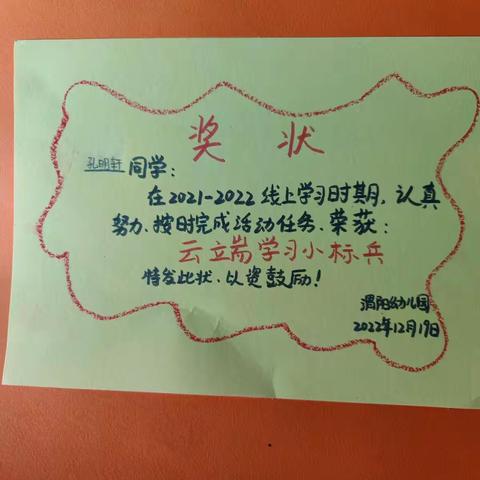 奖 状
孔明轩同学:
在2021-2022线上学习时期,认真
努力、按时完成活动任务、荣获:
云端学习小标兵
特发此状、以资鼓励!
渭阳幼儿园
2022年12月19日